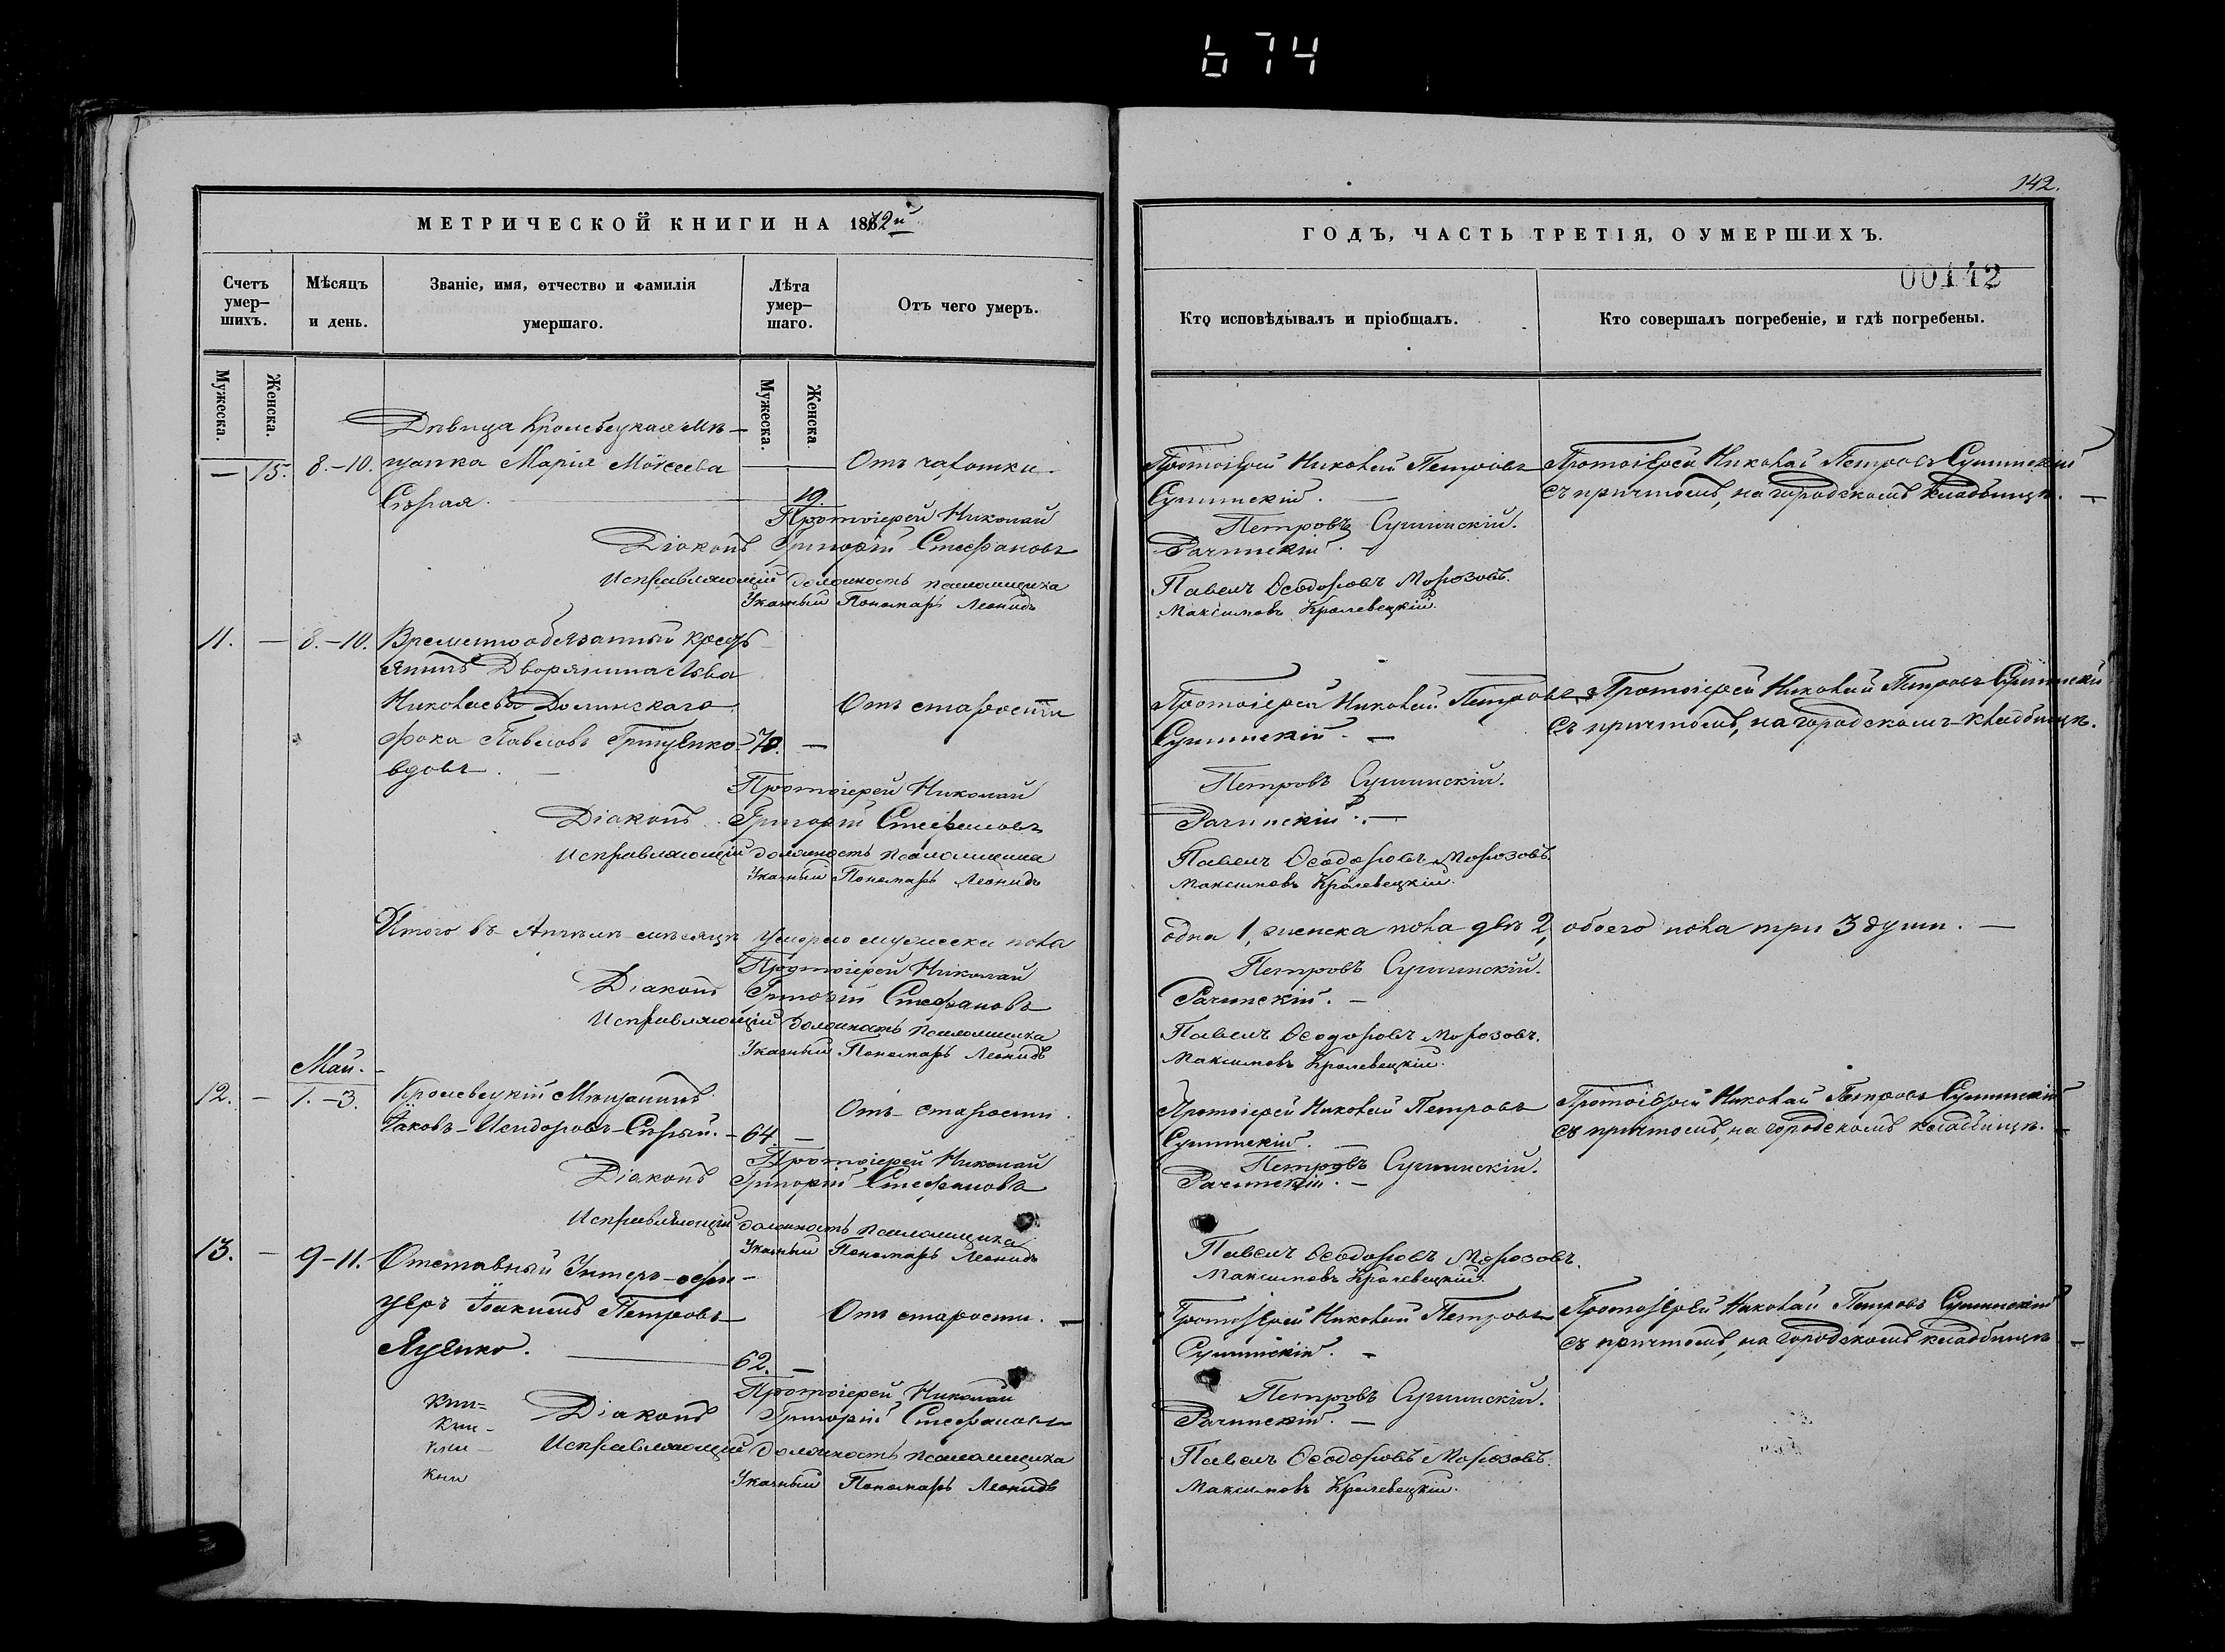 674
142.
МЕТРИЧЕСКОЙ КНИГИ НА 1872й
ГОДЪ, ЧАСТЬ ТРЕТІЯ, О УМЕРШИХЪ.
00142
Счетъ умер-
шихъ.
Мѣсяцъ
и день.
Званіе, имя, отчество и фамилія
умершаго.
Лѣта
умер-
шаго.
Отъ чего умеръ.
Кто исповѣдывалъ и пріобщалъ.
Кто совершалъ погребеніе, и гдѣ погребены.
Мужеска.
Женска.
Мужеска.
Женска.
Дѣвица Кролевецкая мѣ-
— 15. 8.-10. щанка Марія Моѵсеева
Сѣрая.
19.
Отъ чахотки.
Протоіерей Николай Петровъ
Сушинскій.
Протоіерей Николай Петровъ Сушинскій
съ причтомъ, на городскомъ кладбищѣ.
Протоіерей Николай Петровъ Сушинскій.
Діаконъ Григорій Стефановъ Рачинскій.
Исправляющій должность псаломщика Павелъ Ѳеодоровъ Морозовъ.
Указный Пономарь Леонидъ Максимовъ Кролевецкій.
11. — 8.-10. Временнообязанный кресть-
янинъ Дворянина Льва
Николаева Долинскаго
Фока Павловъ Грищенко
вдовъ.
70. —
Отъ старости
Протоіерей Николай Петровъ
Сушинскій. —
Протоіерей Николай Петровъ Сушинскій
съ причтомъ, на городскомъ кладбищѣ.
Протоіерей Николай Петровъ Сушинскій.
Діаконъ Григорій Стефановъ Рачинскій. —
Исправляющій должность псаломщика Павелъ Ѳеодоровъ Морозовъ.
Указный Пономарь Леонидъ Максимовъ Кролевецкій.
Итого въ Апрѣлѣ мѣсяцѣ умерло мужеска пола одна 1, женска пола двѣ 2, обоего пола три 3 души. —
Протоіерей Николай Петровъ Сушинскій.
Діаконъ Григорій Стефановъ Рачинскій. —
Исправляющій должность псаломщика Павелъ Ѳеодоровъ Морозовъ.
Указный Пономарь Леонидъ Максимовъ Кролевецкій.
Май.
12. — 1.-3. Кролевецкій Мѣщанинъ
Іаковъ Исидоровъ Сѣрый. — 64. —
Отъ старости.
Протоіерей Николай Петровъ
Сушинскій. —
Протоіерей Николай Петровъ Сушинскій
съ причтомъ, на городскомъ кладбищѣ. —
Протоіерей Николай Петровъ Сушинскій.
Діаконъ Григорій Стефановъ Рачинскій. —
Исправляющій должность псаломщика Павелъ Ѳеодоровъ Морозовъ.
Указный Пономарь Леонидъ Максимовъ Кролевецкій.
13. — 9-11. Отставный Унтеръ-офи-
церъ Іоакимъ Петровъ
Яценко.
62. —
Отъ старости. —
Протоіерей Николай Петровъ
Сушинскій. —
Протоіерей Николай Петровъ Сушинскій
съ причтомъ, на городскомъ кладбищѣ
Протоіерей Николай Петровъ Сушинскій.
Діаконъ Григорій Стефановъ Рачинскій. —
Исправляющій должность псаломщика Павелъ Ѳеодоровъ Морозовъ.
Указный Пономарь Леонидъ Максимовъ Кролевецкій.